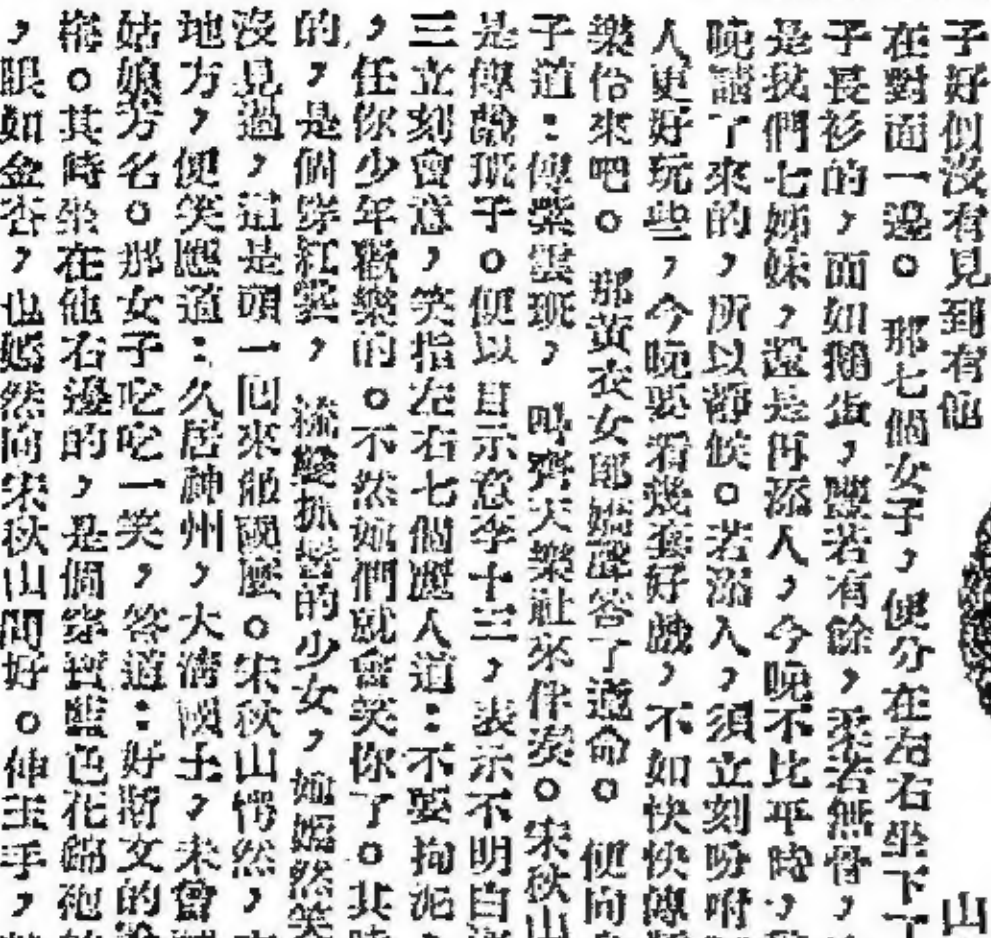 子好似沒有見到有他　山
在對面一邊。那七個女子，便分在左右坐下了
子長衫的，面如鵝蛋，豐若有餘，柔若無骨，
是我們七姊妹，還是再添人，今晚不比平時，
晚請了來的，所以靜候。若添人，須立刻吩咐
人更好玩些，今晚要看幾套好戲，不如快快傳
樂佮來吧。那黃衣女郎嬌聲答了遵命。便向
子道：傳紫雲班，叫齊天樂社來伴奏。宋秋山
是傳戲班子。便以目示意李十三，表示不明白
三立刻會意，笑指左右七個麗人道：不要拘泥
，任你少年歡樂的。不然她們就會笑你了。其
的，是個穿紅裳，梳雙抓髻的少女，她嫣然笑
沒見過，這是頭一回來敝國麼。宋秋山愕然，
地方，便笑應道：久居神州，大清國土，未曾
姑娘芳名。那女子吃吃一笑，答道：好斯文的
。其時坐在他右邊的，是個穿寶藍色花錦袍
，眼如金杏，也嫣然向宋秋山問好。伸玉手，